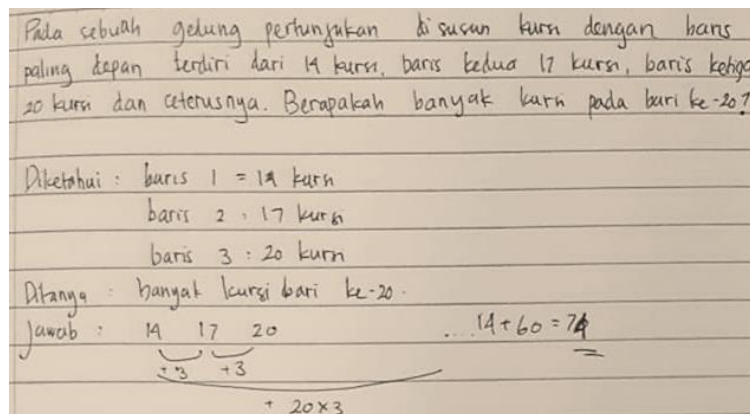 Pada sebuah gedung pertunjukan disusun kursi dengan baris
paling depan terdiri dari 14 kursi, baris kedua 17 kursi, baris ketiga
20 kursi dan ceterusnya. Berapakah banyak kursi pada bari ke-20?
Diketahui : baris 1 = 14 kursi
baris 2 : 17 kursi
baris 3 : 20 kursi
Ditanya : banyak kursi bari ke-20.
Jawab : 14 17 20 .... 14+60=74
+3 +3
+ 20×3